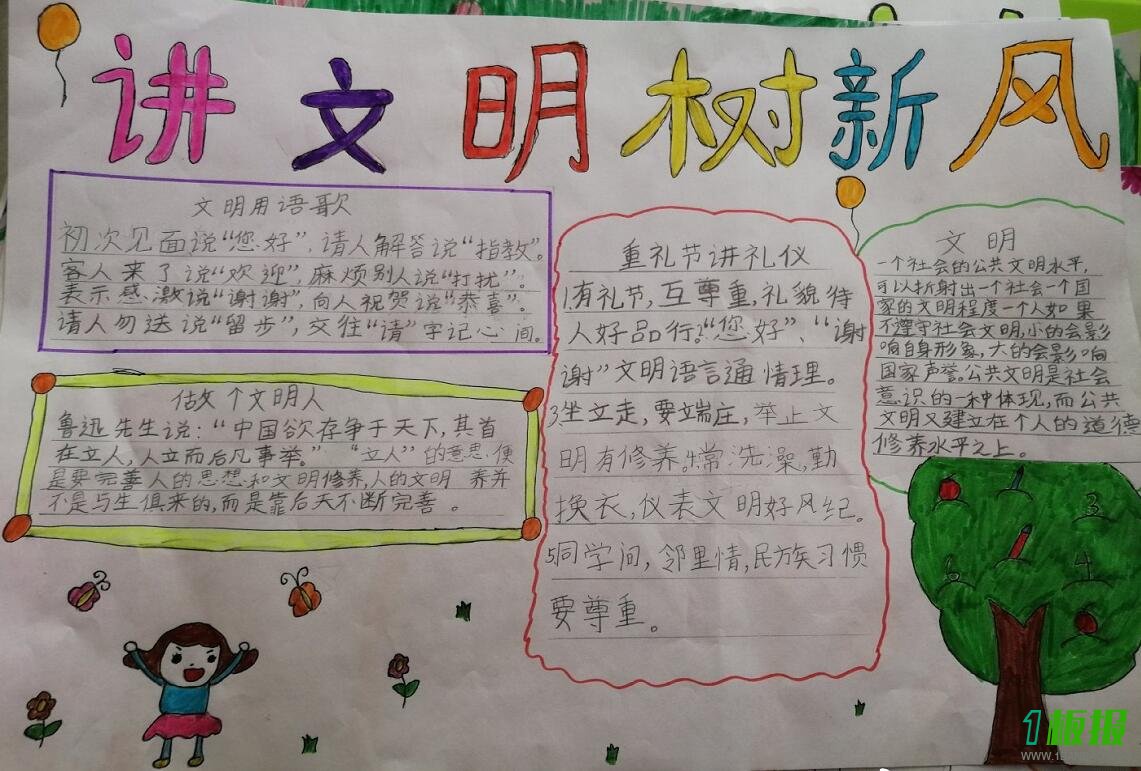 讲文明树新风
文明用语歌
初次见面说“您好”，请人解答说“指教”。
客人来了说“欢迎”，麻烦别人说“打扰”。
表示感激说“谢谢”，向人祝贺说“恭喜”。
请人勿送说“留步”，交往“请”字记心间。
做个文明人
鲁迅先生说：“中国欲存争于天下，其首
在立人，人立而后凡事举。”“立人”的意思便
是要完善人的思想和文明修养，人的文明 养并
不是与生俱来的，而是靠后天不断完善。
重礼节讲礼仪
1.有礼节，互尊重，礼貌待
人好品行。2.“您好”、“谢
谢”文明语言通情理。
3.坐立走，要端庄，举止文
明有修养。4.常洗澡，勤
换衣，仪表文明好风纪。
5.同学间，邻里情，民族习惯
要尊重。
文明
一个社会的公共文明水平，
可以折射出一个社会一个国
家的文明程度一个人如果
不遵守社会文明，小的会影
响自身形象，大的会影响
国家声誉。公共文明是社会
意识的一种体现，而公共
文明又建立在个人的道德
修养水平之上。
3
4
6
1板报